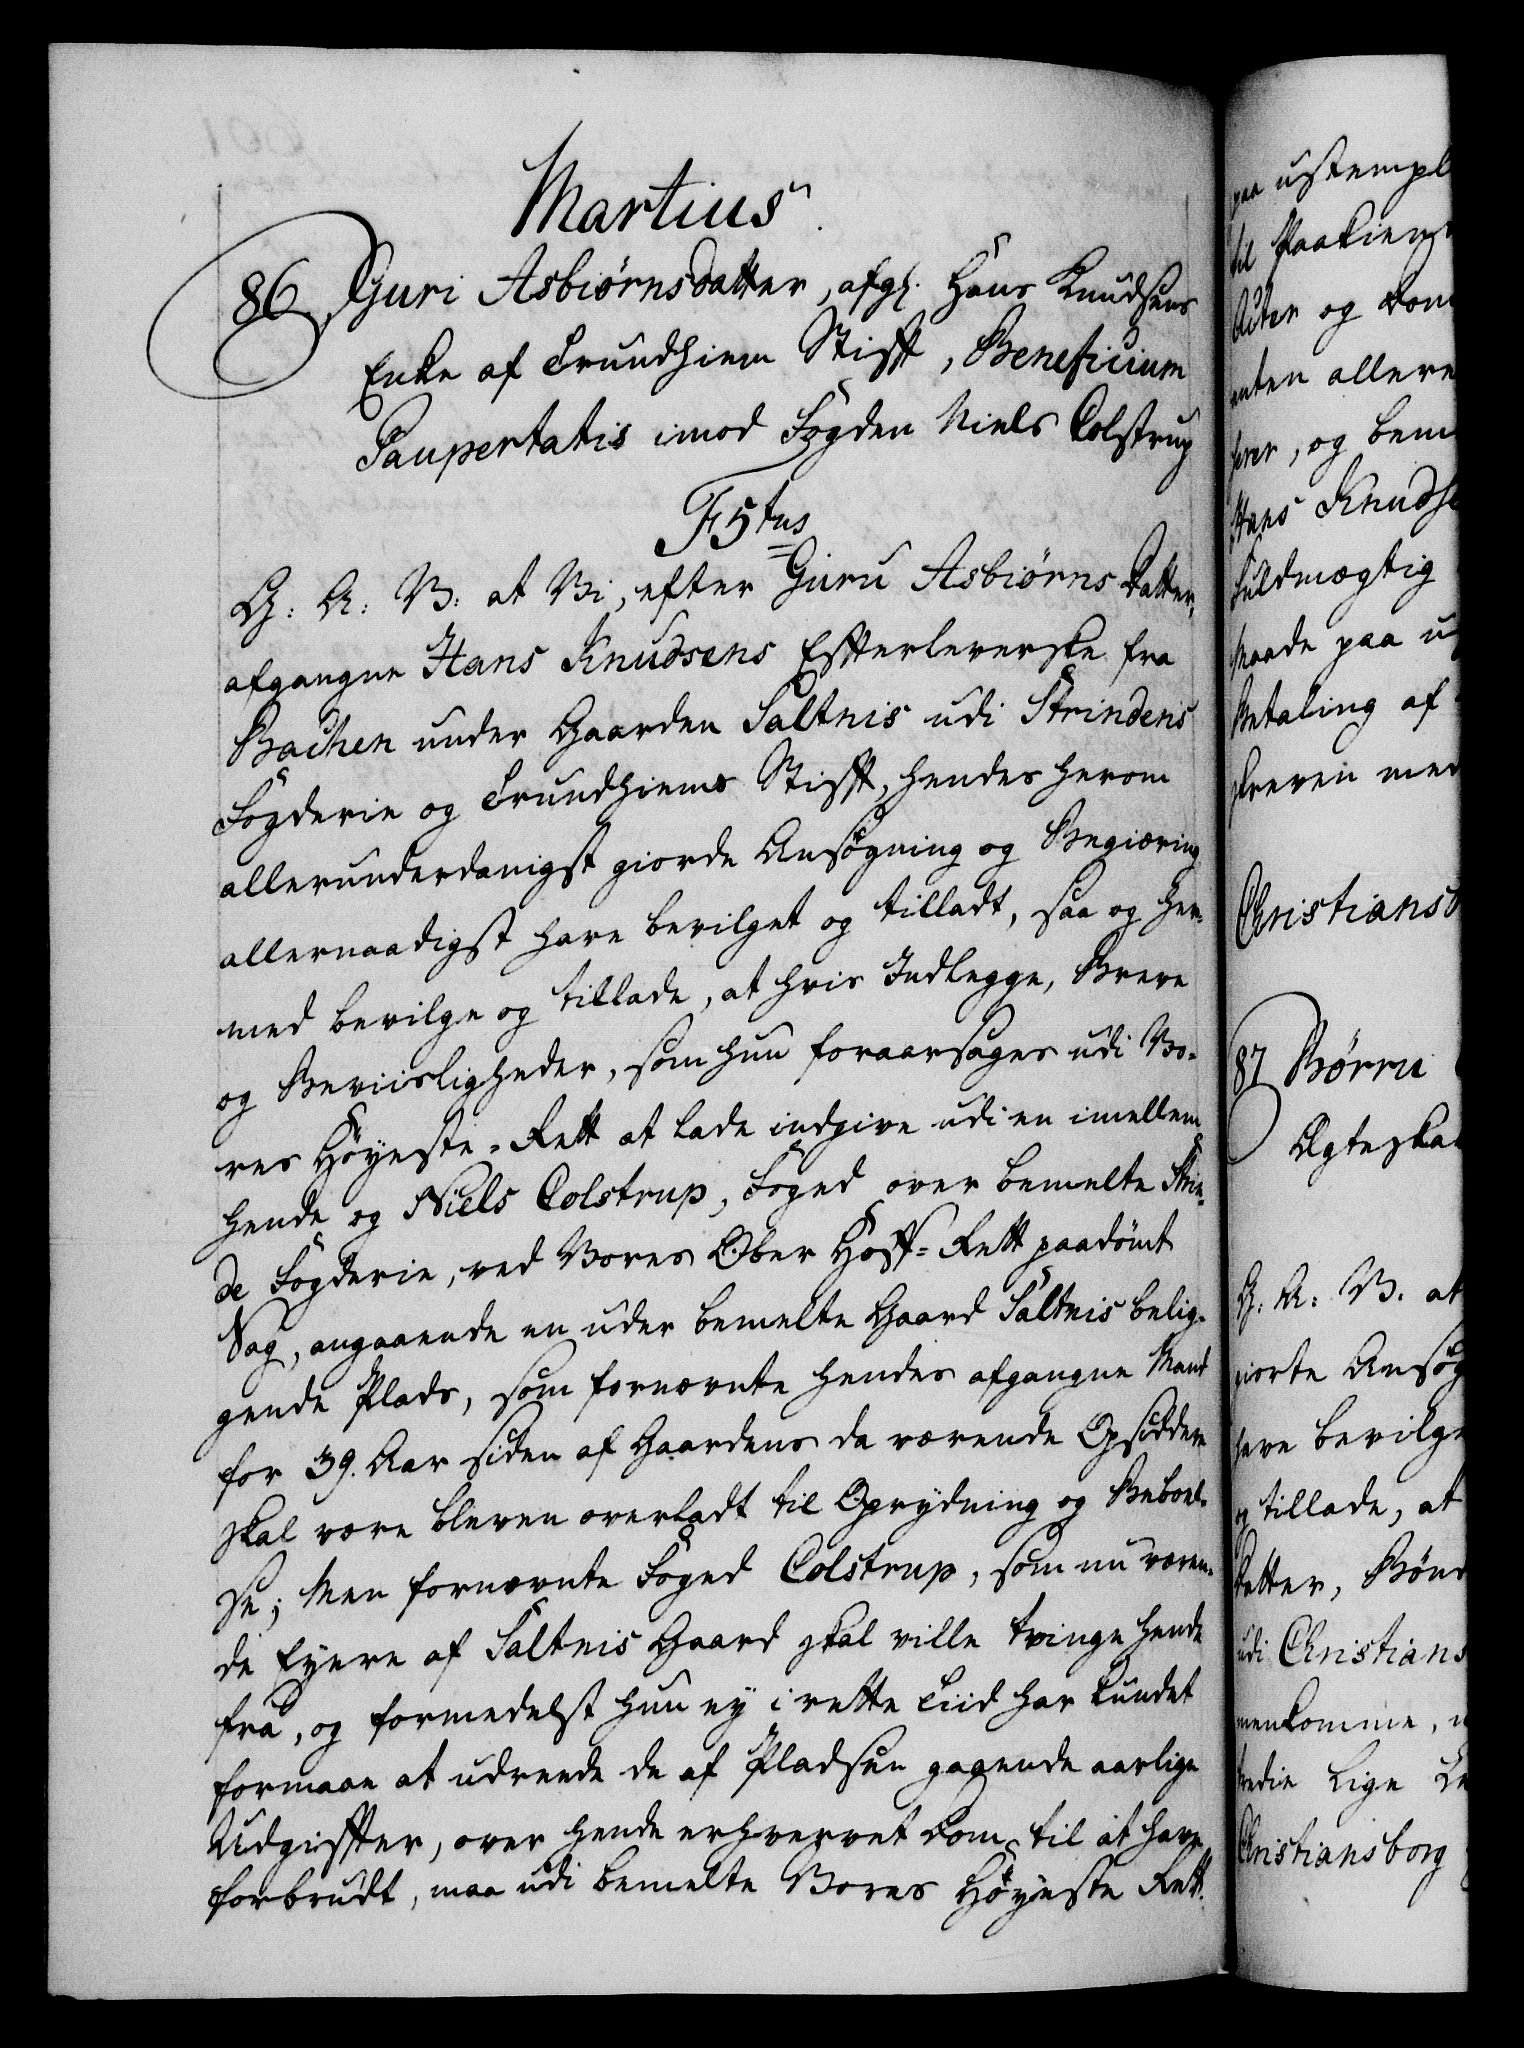 Martius.
86 Guri Asbiørnsdatter, afgl. Hans Knudsens
Enke af Trundhiem Stifft, Beneficium
Paupertatis imod Fogden Niels Colstrup
F 5tus
G: A: V: at Vi, efter Guru Asbiørns Datter,
afgangne Hans Knudsens Effterleverske fra
Bachen under Gaarden Saltnis udi Strindens
Fogderie og Trundhiems Stifft, hendes herom
allerunderdanigst giorde Ansøgning og Begiæring
allernaadigst have bevilget og tilladt, saa og her-
med bevilge og tillade, at hvis Indlegge, Breve
og Beviisligheder, som hun foraarsages udi Vo-
res Höyeste-Rett at lade indgive udi en imellem
hende og Niels Colstrup, Foged over bemelte Strin-
de Fogderie, ved Vores Ober Hoff-Rett paadømt
Sag, angaaende en under bemelte Gaard Saltnis belig-
gende Plads, som fornævnte hendes afgangne Mand
for 39. Aar siden af Gaardens da værende Opsidder
skal være bleven overladt til Oprydning og Beboel-
se; Men fornævnte Foged Colstrup, som nu væren-
de Eyere af Saltnis Gaard skal ville tvinge hende
fra, og formedelst hun ey i rette Tiid har kundet
formaae at udreede de af Pladsen gagende aarlige
Udgiffter, over hende erhvervet Dom til at have
forbrudt, maa udi bemelte Vores Höyeste Rett.
paa ustempl
til
Acter og Dom
allere
, og bem
Hans Knudse
Fuldmægtig
Maade paa u
Betaling af
skreven med
Christiansb
87 Børru
Ægteskab
G: A: V. at
giorte Ansøg
have bevilge
og tillade, at
Datter, Bønd
udi Christians
menkomme,
tredie Lige Le
Christiansborg